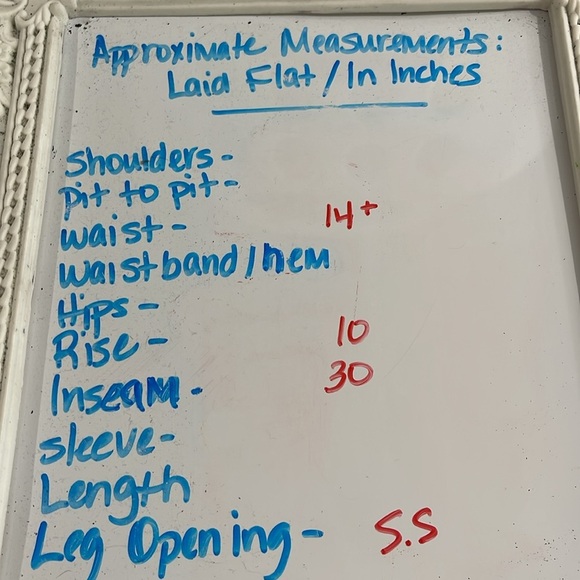 Approximate Measurements:
Laid Flat / In Inches
Shoulders -
pit to pit -
waist - 14+
waistband/hem
Hips -
Rise - 10
Inseam - 30
sleeve -
Length
Leg Opening - 5.5